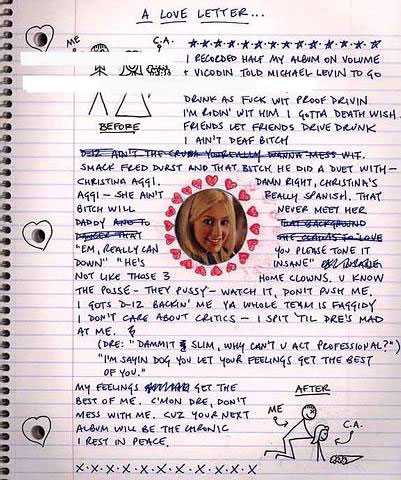 A LOVE LETTER...
ME
C.A.
I RECORDED HALF MY ALBUM ON VOLUME
+ VICODIN TOLD MICHAEL LEVIN TO GO
DRINK AS FUCK WIT PROOF DRIVIN
I'M RIDIN' WIT HIM I GOTTA DEATH WISH
FRIENDS LET FRIENDS DRIVE DRUNK
I AIN'T DEAF BITCH
BEFORE
D-12 AIN'T THE CRUMB YOU REALLY WANNA MESS WIT.
SMACK FRED DURST AND THAT BITCH HE DID A DUET WITH-
CHRISTINA AGGI. DAMN RIGHT, CHRISTINA'S
AGGI - SHE AIN'T REALLY SPANISH, THAT
BITCH WILL NEVER MEET HER
DADDY AND TO THAT BACKGROUND
THAT SHE CLAIMS TO LOVE
"EM, REALLY CAN YOU PLEASE TONE IT
DOWN" "HE'S INSANE"
NOT LIKE THOSE 3 HOME CLOWNS. U KNOW
THE POSSE - THEY PUSSY - WATCH IT, DON'T PUSH ME.
I GOTS D-12 BACKIN' ME YA WHOLE TEAM IS FAGGIDY
I DON'T CARE ABOUT CRITICS - I SPIT 'TIL DRE'S MAD
AT ME.
(DRE: "DAMMIT SLIM, WHY CAN'T U ACT PROFESSIONAL?")
"I'M SAYIN DOG YOU LET YOUR FEELINGS GET THE BEST
OF YOU."
MY FEELINGS GET THE
BEST OF ME. C'MON DRE, DON'T
MESS WITH ME. CUZ YOUR NEXT
ALBUM WILL BE THE CHRONIC
I REST IN PEACE.
AFTER
ME
C.A.
X-X-X-X-X-X-X-X-X-X-X